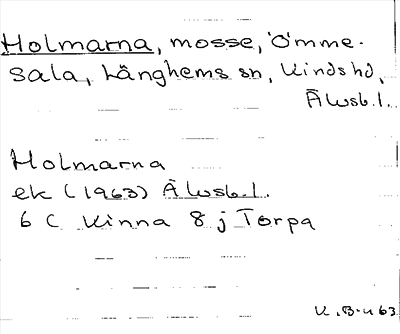 Holmarna, mosse, Ömme-
sala, Länghems sn, Kinds hd,
Älvsb.l.
Holmarna
ek (1963) Älvsb.l.
6 C Kinna 8 j Torpa
K.B-n 63